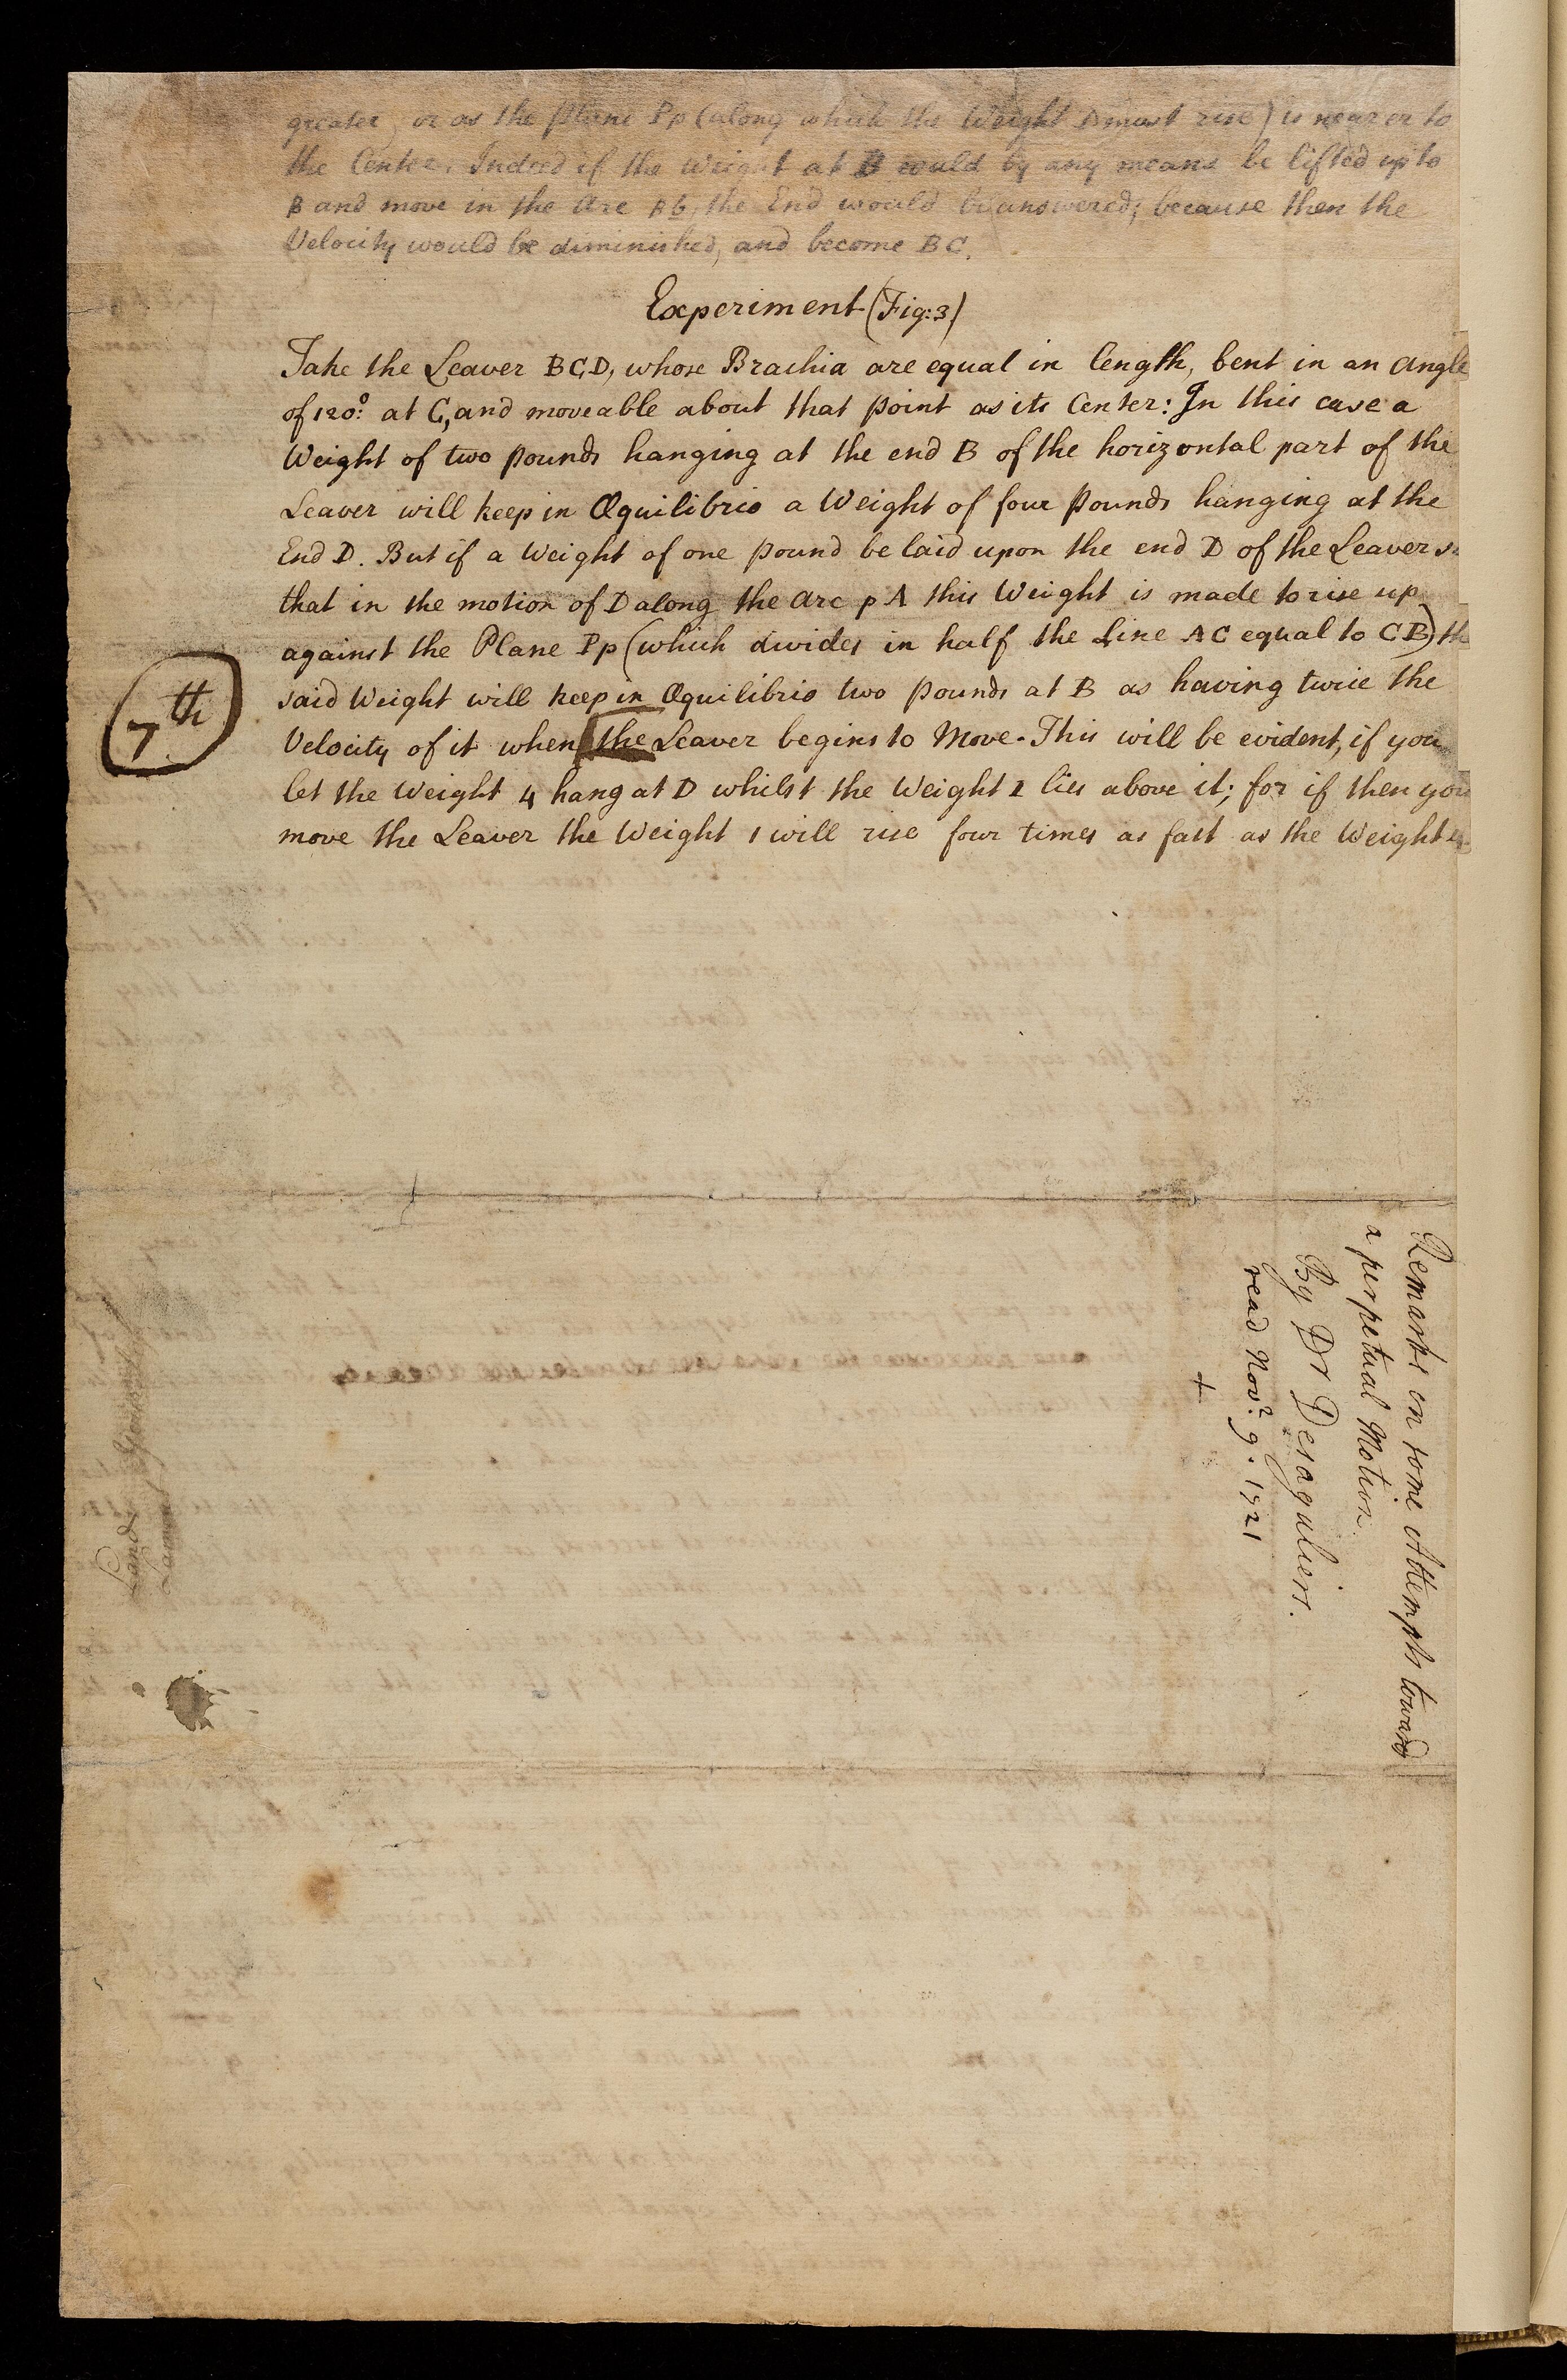 greater, or as the plane Pp (along which the Weight D must rise) is nearer to
the Center. Indeed if the Weight at B would by any means be lifted up to
B and move in the Arc Bb, the End would be answered; because then the
Velocity would be diminished, and become BC.
Experiment (Fig: 3)
Take the Leaver BCD, whose Brachia are equal in length, bent in an Angle
of 120.° at C, and moveable about that point as its Center: In this case a
Weight of two pounds hanging at the end B of the horizontal part of the
Leaver will keep in Æquilibrio a Weight of four pounds hanging at the
End D. But if a Weight of one pound be laid upon the end D of the Leaver so
that in the motion of D along the Arc pA this Weight is made to rise up
against the Plane Pp (which divides in half the Line AC equal to CB) the
said Weight will keep in Æquilibrio two pounds at B as having twice the
7th
Velocity of it when the Leaver begins to Move. This will be evident, if you
let the Weight 4 hang at D whilst the Weight 1 lies above it; for if then you
move the Leaver the Weight 1 will rise four times as fast as the Weight 4.
Remarks on some Attempts toward
a perpetual Motion.
By Dr Desaguliers.
read Nov.r 9. 1721
+